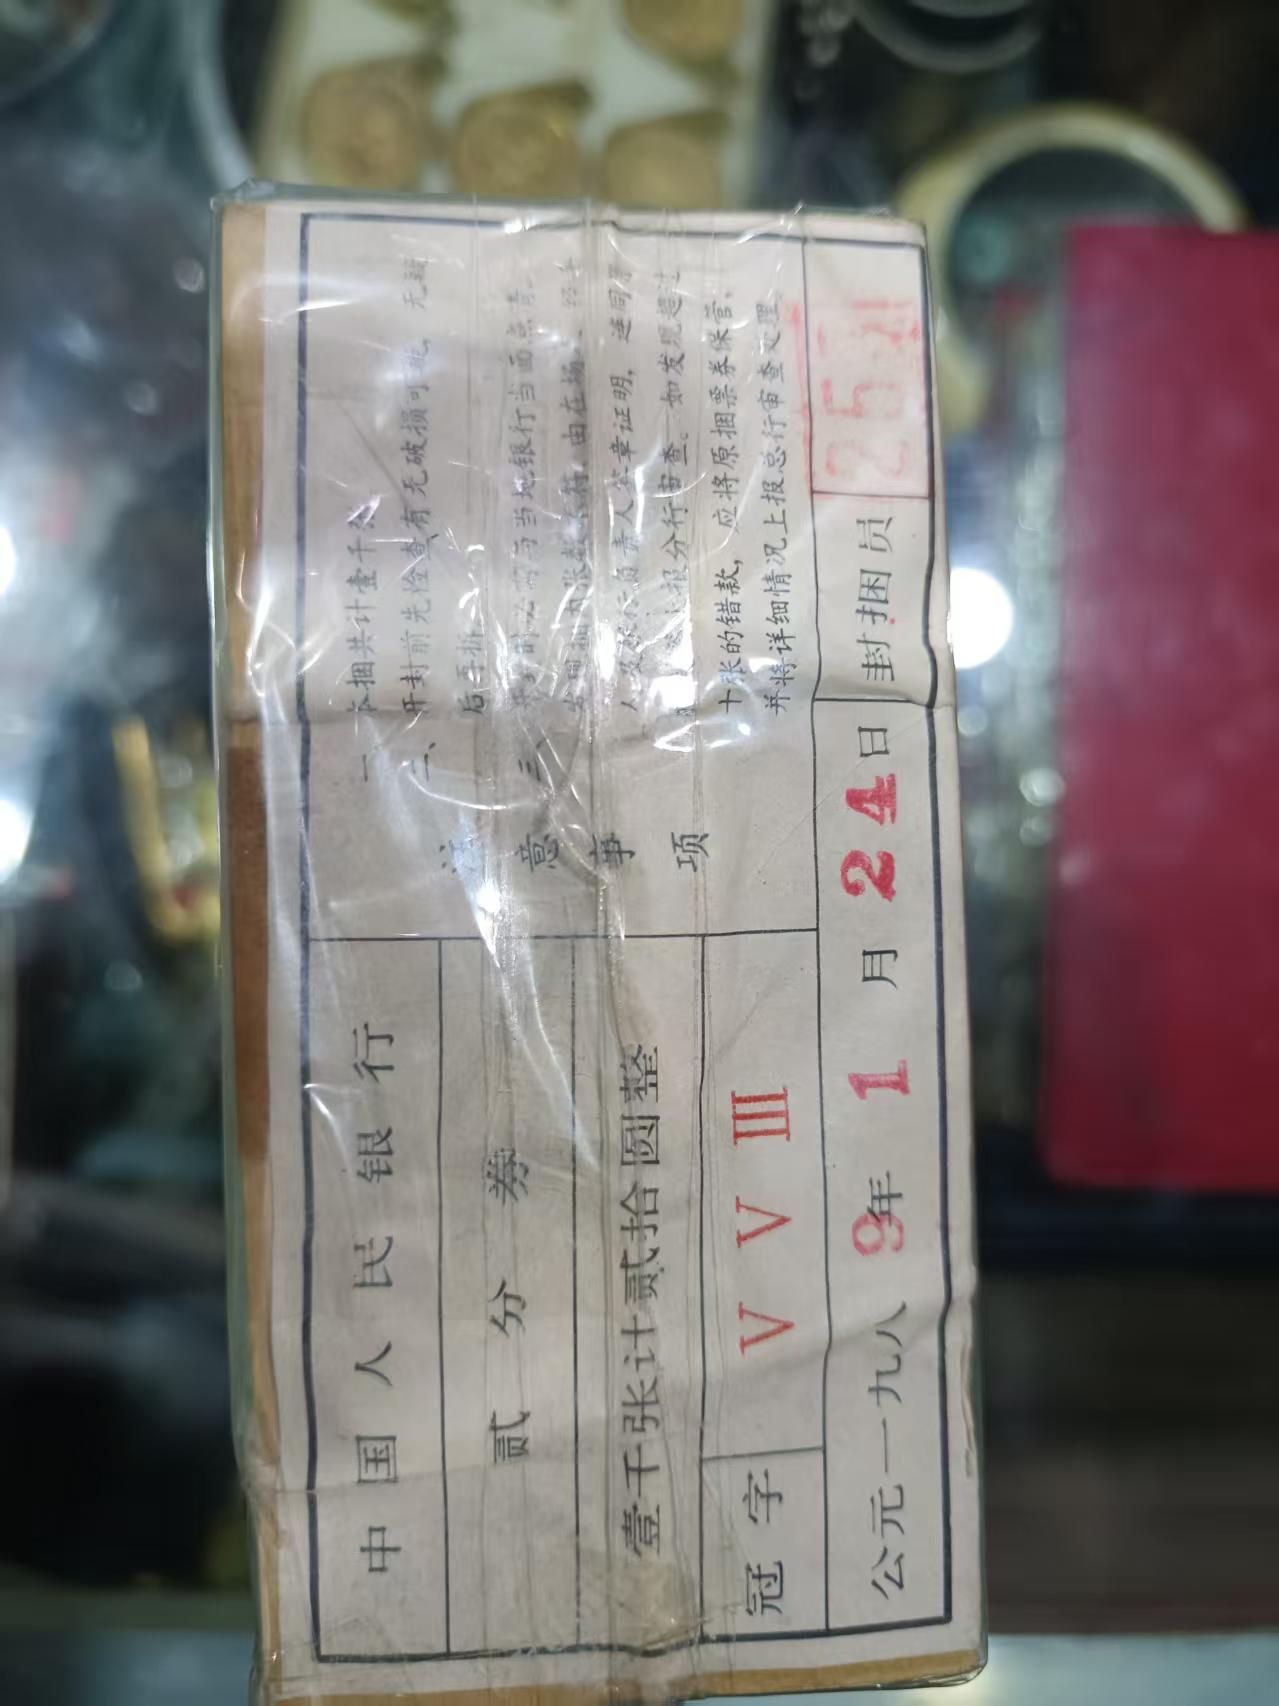 中国人民银行
贰分券
壹千张计贰拾圆整
冠字 V V Ⅲ
注意事项
一、本捆共计壹千张
二、开封前先检查有无破损可疑,无疑
后再拆
三、与当地银行当面点清
由在场
负责人签章证明,连同原
报分行审查。如发现超过
十张的错款,应将原捆票券保管,
并将详细情况上报总行审查处理
公元一九八9年1月24日 封捆员